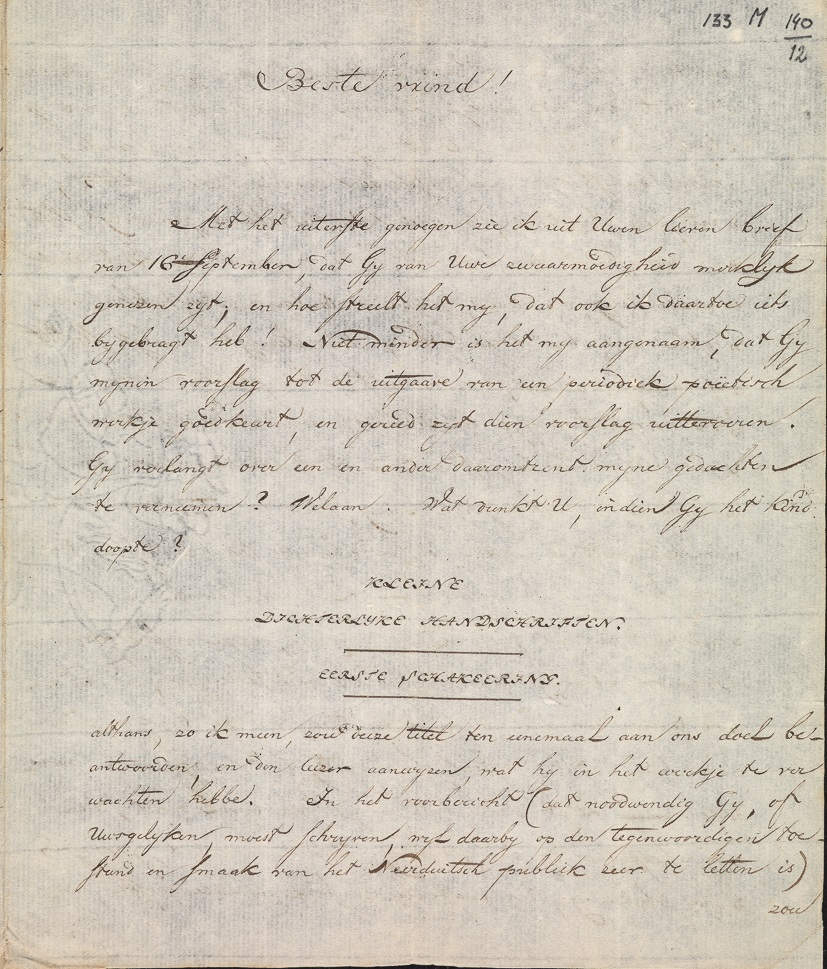 133 M 140
12
Beste vriend!
Met het uiterste genoegen zie ik uit Uwen lieven brief
van 16 September, dat Gy van Uwe zwaarmoedigheid merklyk
genezen zyt; en hoe streelt het my, dat ook ik daartoe iets
bygebragt heb! Niet minder is het my aangenaam, dat Gy
mynen voorslag tot de uitgaave van een periodiek poëtisch
werkje goedkeurt, en gereed zyt dien voorslag uittevoeren.
Gy verlangt over een en ander daaromtrent myne gedachten
te verneemen? Welaan. Wat dunkt U, indien Gy het kind
doopte?
KLEINE
DICHTERLYKE HANDSCHRIFTEN.
EERSTE SCHAKEERING.
althans, zo ik meen, zou deeze titel ten eenemaal aan ons doel be-
antwoorden, en den leezer aanwyzen, wat hy in het werkje te ver
wachten hebbe. In het voorbericht (dat noodwendig Gy, of
Uwsgelyken, moest schryven, wyl daarby op den tegenwoordigen toe-
stand en smaak van het Neêrduitsch publiek zeer te letten is)
zou